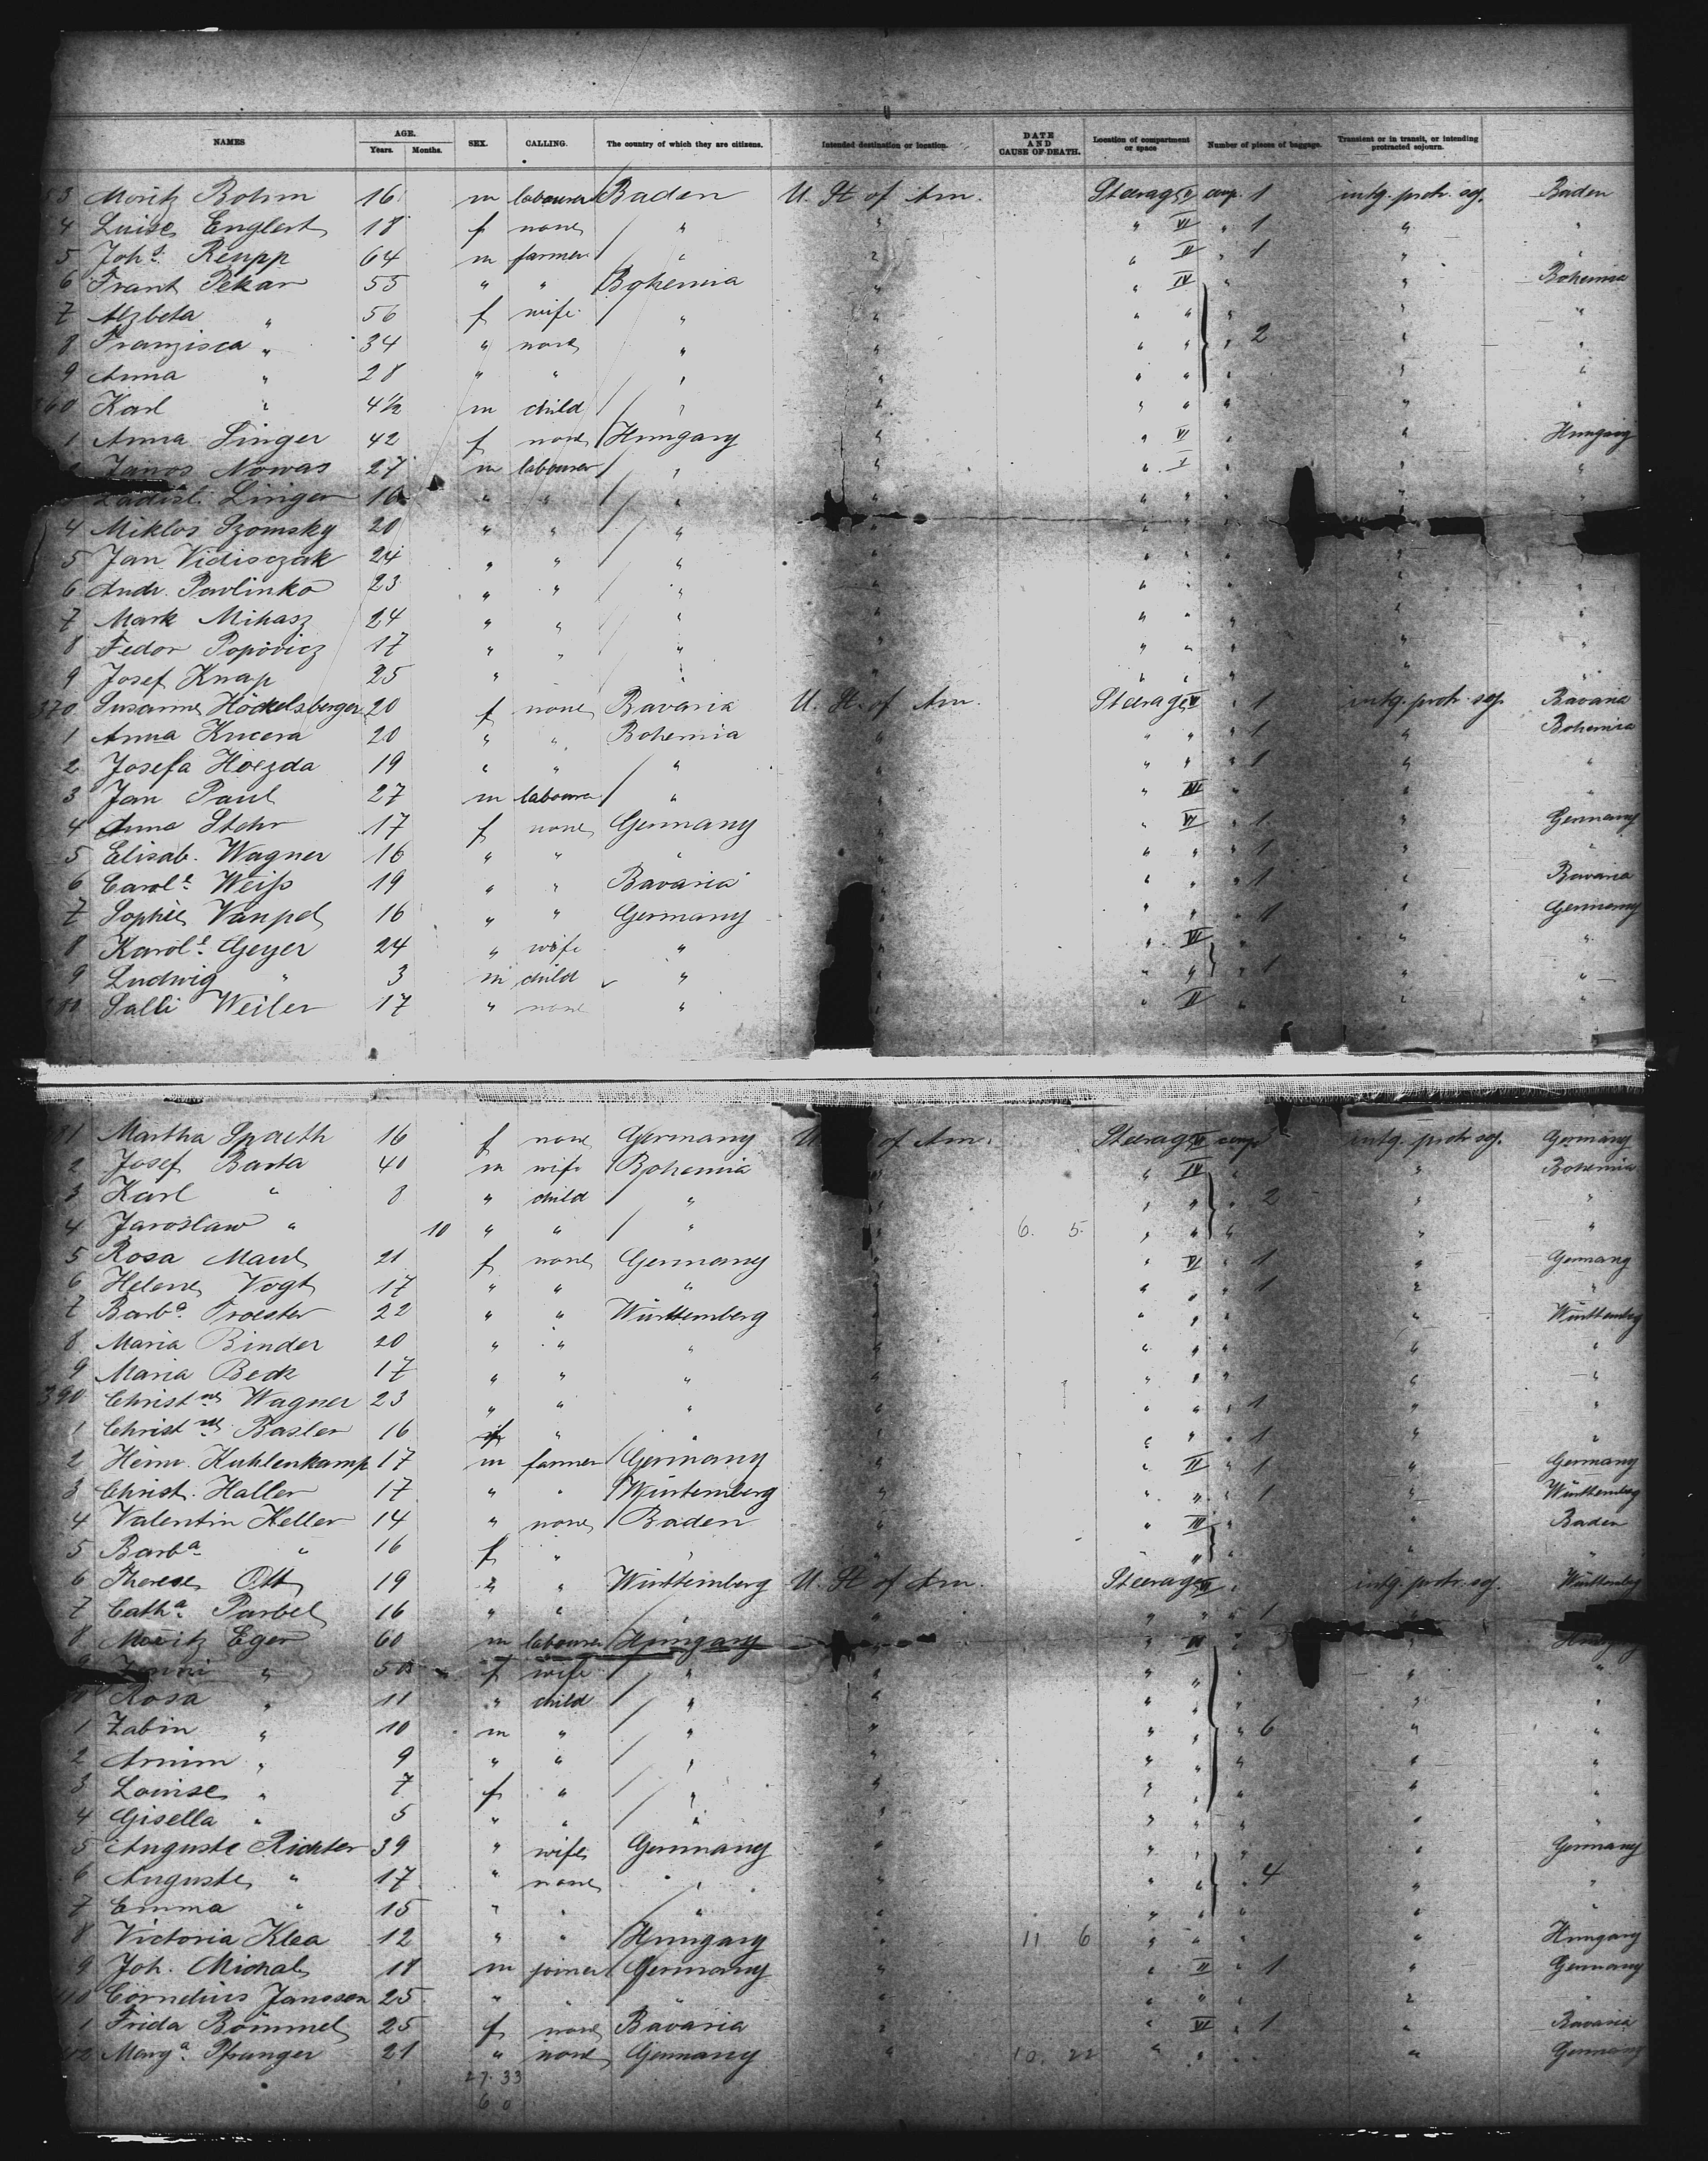 NAMES AGE. Years. Months. SEX. CALLING. The country of which they are citizens. Intended destination or location. DATE AND CAUSE OF DEATH. Location of compartment or space Number of pieces of baggage. Transient or in transit, or intending protracted sojourn.
3 Moritz Bohm 16 m labourer Baden U. St. of Am. Steerage V comp. 1 intg. protr. soj. Baden
4 Luise Englert 18 f none " " " VI " 1 " "
5 Joh.s Reupp 64 m farmer " " " II " 1 " "
6 Frant Pekar 55 " " Bohemia " " IV " " Bohemia
7 Alzbeta " 56 f wife " " " " " " "
8 Franzisca " 34 " none " " " " " 2 " "
9 Anna " 28 " " " " " " " "
360 Karl " 4½ m child " " " " " " "
1 Anna Singer 42 f none Hungary " " VI " " Hungary
2 Janos Nowas 27 m labourer " " " I " " "
Ladisl. Singer 16 " " " " " " " "
4 Miklos Szomsky 20 " " " " " " " "
5 Jan Vidisczak 24 " " " " " " " "
6 Andr. Pavlinko 23 " " " " " " " "
7 Mark Mihasz 24 " " " " " " " " "
8 Fedor Popovicz 17 " " " " " " " " "
9 Josef Knap 25 " " " " " " " " "
370 Susanne Höckelsberger 20 f none Bavaria U. St. of Am. Steerage VI " 1 intg. protr. soj. Bavaria
1 Anna Kucera 20 " " Bohemia " " " " 1 " Bohemia
2 Josefa Hoezda 19 " " " " " " " 1 " "
3 Jan Paul 27 m labourer " " " IV " "
4 Anna Stohr 17 f none Germany " " VI " 1 " Germany
5 Elisab. Wagner 16 " " " " " " " 1 " "
6 Carol.e Weiß 19 " " Bavaria " " " " 1 " Bavaria
7 Sophie Vanpel 16 " " Germany " " " " 1 " Germany
8 Karol.e Geyer 24 " wife " " VI " "
9 Ludwig " 3 m child " " " " 1 " "
Salli Weiler 17 " none " " II " " "
81 Martha Spaeth 16 f none Germany U. of Am. Steerage VI comp. intg. protr. soj. Germany
2 Josef Barta 40 m wife Bohemia " " IV " " Bohemia
3 Karl " 8 " child " " " " 2 " "
4 Jaroslaw " 10 " " " " 6. 5. " " " " "
5 Rosa Maul 21 f none Germany " " VI " 1 " Germany
6 Helene Vogt 17 " " " " " " " 1 " "
7 Barb.a Troester 22 " " Württemberg " " " " " Württemberg
8 Maria Binder 20 " " " " " " " " "
9 Maria Beck 17 " " " " " " " " "
390 Christ.ne Wagner 23 " " " " " " " 1 " "
1 Christ.ne Basler 16 f " " " " " " 1 " "
2 Heinr. Kuhlenkamp 17 m farmer Germany " " III " 1 " Germany
3 Christ. Haller 17 " " Württemberg " " " " 1 " Württemberg
4 Valentin Keller 14 " none Baden " " III " " Baden
5 Barb.a " 16 f " " " " " " "
6 Therese Ott 19 " " Württemberg U. St of Am. Steerage VI " intg. protr. soj. Württemberg
7 Cath.a Parbel 16 " " " " " " " 1 "
8 Moritz Eger 60 m labourer Hungary " IV " "
9 " 50 f wife " " " " " "
Rosa " 11 " child " " " " " " "
1 Zabin " 10 m " " " " " " 6 " "
2 Armin " 9 " " " " " " " " "
3 Louise " 7 f " " " " " " "
4 Gisella " 5 " " " " " " " " "
5 Auguste Richter 39 " wife Germany " " " " " Germany
6 Auguste " 17 " none " " " " " 4 " "
7 Emma " 15 " " " " " " " " "
8 Victoria Klea 12 " " Hungary " 11 6 " " " " Hungary
9 Joh. Michal 18 m joiner Germany " " II " 1 " Germany
410 Cornelius Janssen 25 " " " " " " " " "
1 Frida Bömmel 25 f none Bavaria " " VI " 1 " Bavaria
412 Marg.a Pfranger 21 " none Germany " 10. 22 " " " " Germany
27. 33
60